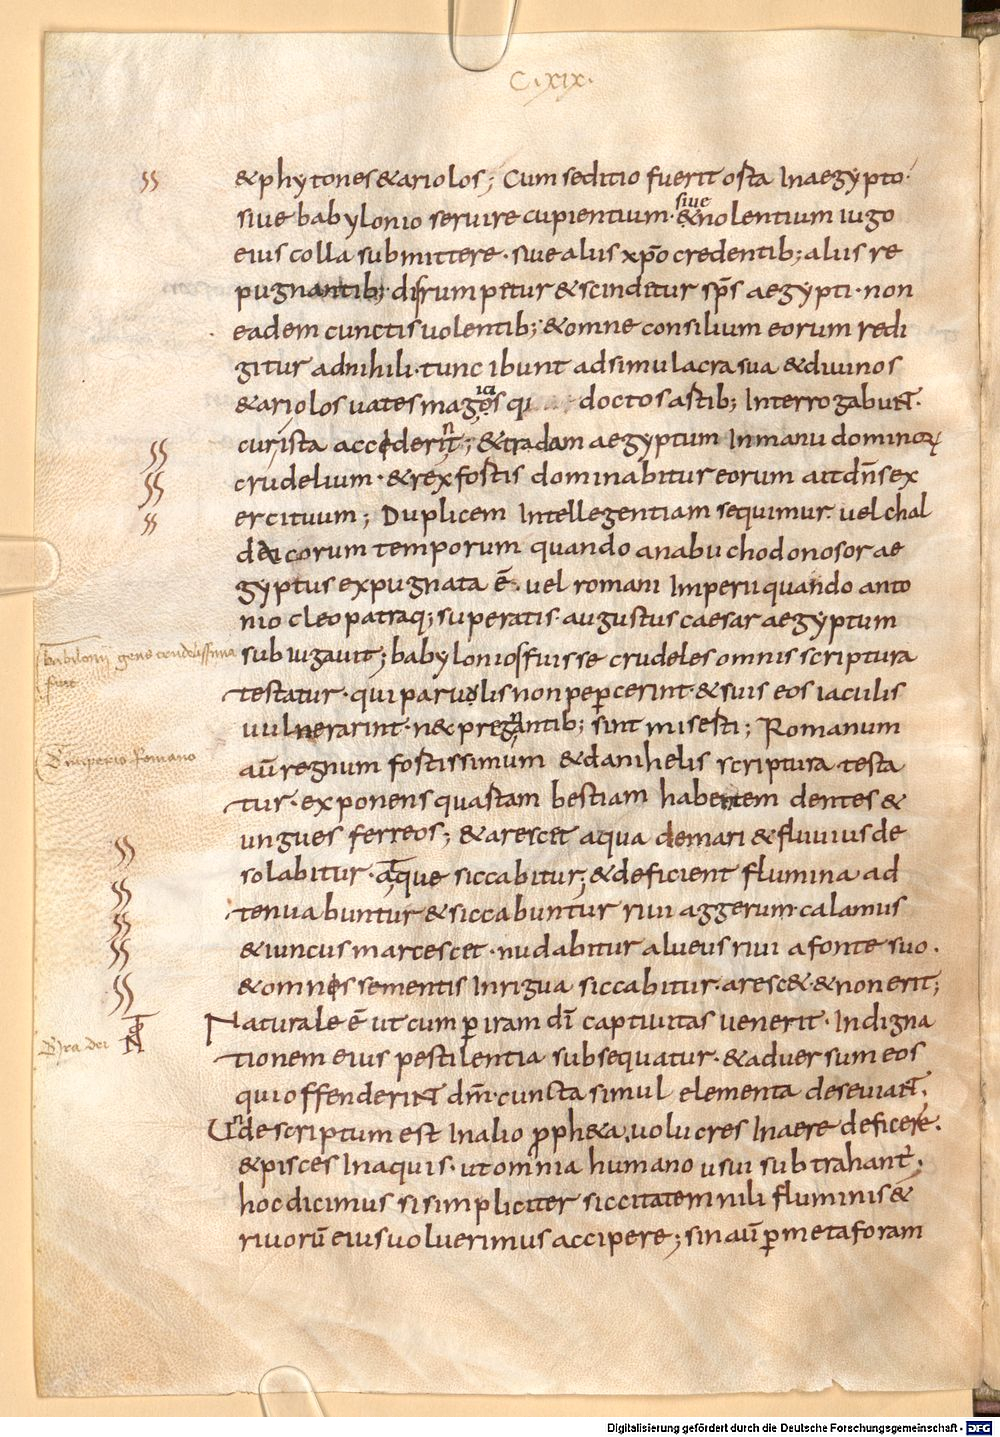 C. xix.
& phytones & ariolos; Cum seditio fuerit orta In aegypto.
siue babylonio seruire cupientium. siue & nolentium iugo
eius colla submittere. siue aliis xp̄o credentib; aliis re
pugnantib; disrumpetur & scindetur sp̄s aegypti. non
eadem cunctis uolentib; & omne consilium eorum redi
gitur ad nihili. tunc ibunt ad simulacra sua & diuinos
& ariolos uates magos doctos astib; Interrogabunt.
cur ista accederint; & tradam aegyptum In manu dominoꝝ
crudelium. & rex fortis dominabitur eorum ait dn̄s ex
ercituum; Duplicem Intellegentiam sequimur. uel chal
daicorum temporum quando a nabuchodonosor ae
gyptus expugnata ē. uel romani Imperii quando anto
nio cleopatraq; superatis. augustus caesar aegyptum
Babilonii gens crudelissima fuit
subiugauit; babylonios fuisse crudeles omnis scriptura
testatur. qui paruolis non pepercerint. & suis eos iaculis
uulnerarint. n& pregnantib; sint miserti; Romanum
Imperio Romano
aū regnum fortissimum & danihelis scriptura testa
tur. exponens quartam bestiam habentem dentes &
ungues ferreos; & arescet aqua de mari & fluuius de
solabitur. atque siccabitur; & deficient flumina ad
tenuabuntur & siccabuntur riui aggerum. calamus
& iuncus marcescet. nudabitur alueus riui a fonte suo.
& omnis sementis Inrigua siccabitur. aresc& & non erit;
Naturale ē ut cum ꝑ iram dī captiuitas uenerit. Indigna
Ira dei
tionem eius pestilentia subsequatur. & aduersum eos
qui offenderint dm̄. cuncta simul elementa deseuiant.
Unde scriptum est In alio proph&a. uolucres In aere deficere.
& pisces In aquis. ut omnia humano usui subtrahant.
hoc dicimus si simpliciter siccitatem nili fluminis &
riuorū eius uoluerimus accipere; sin aū ꝑ metaforam
Digitalisierung gefördert durch die Deutsche Forschungsgemeinschaft - DFG